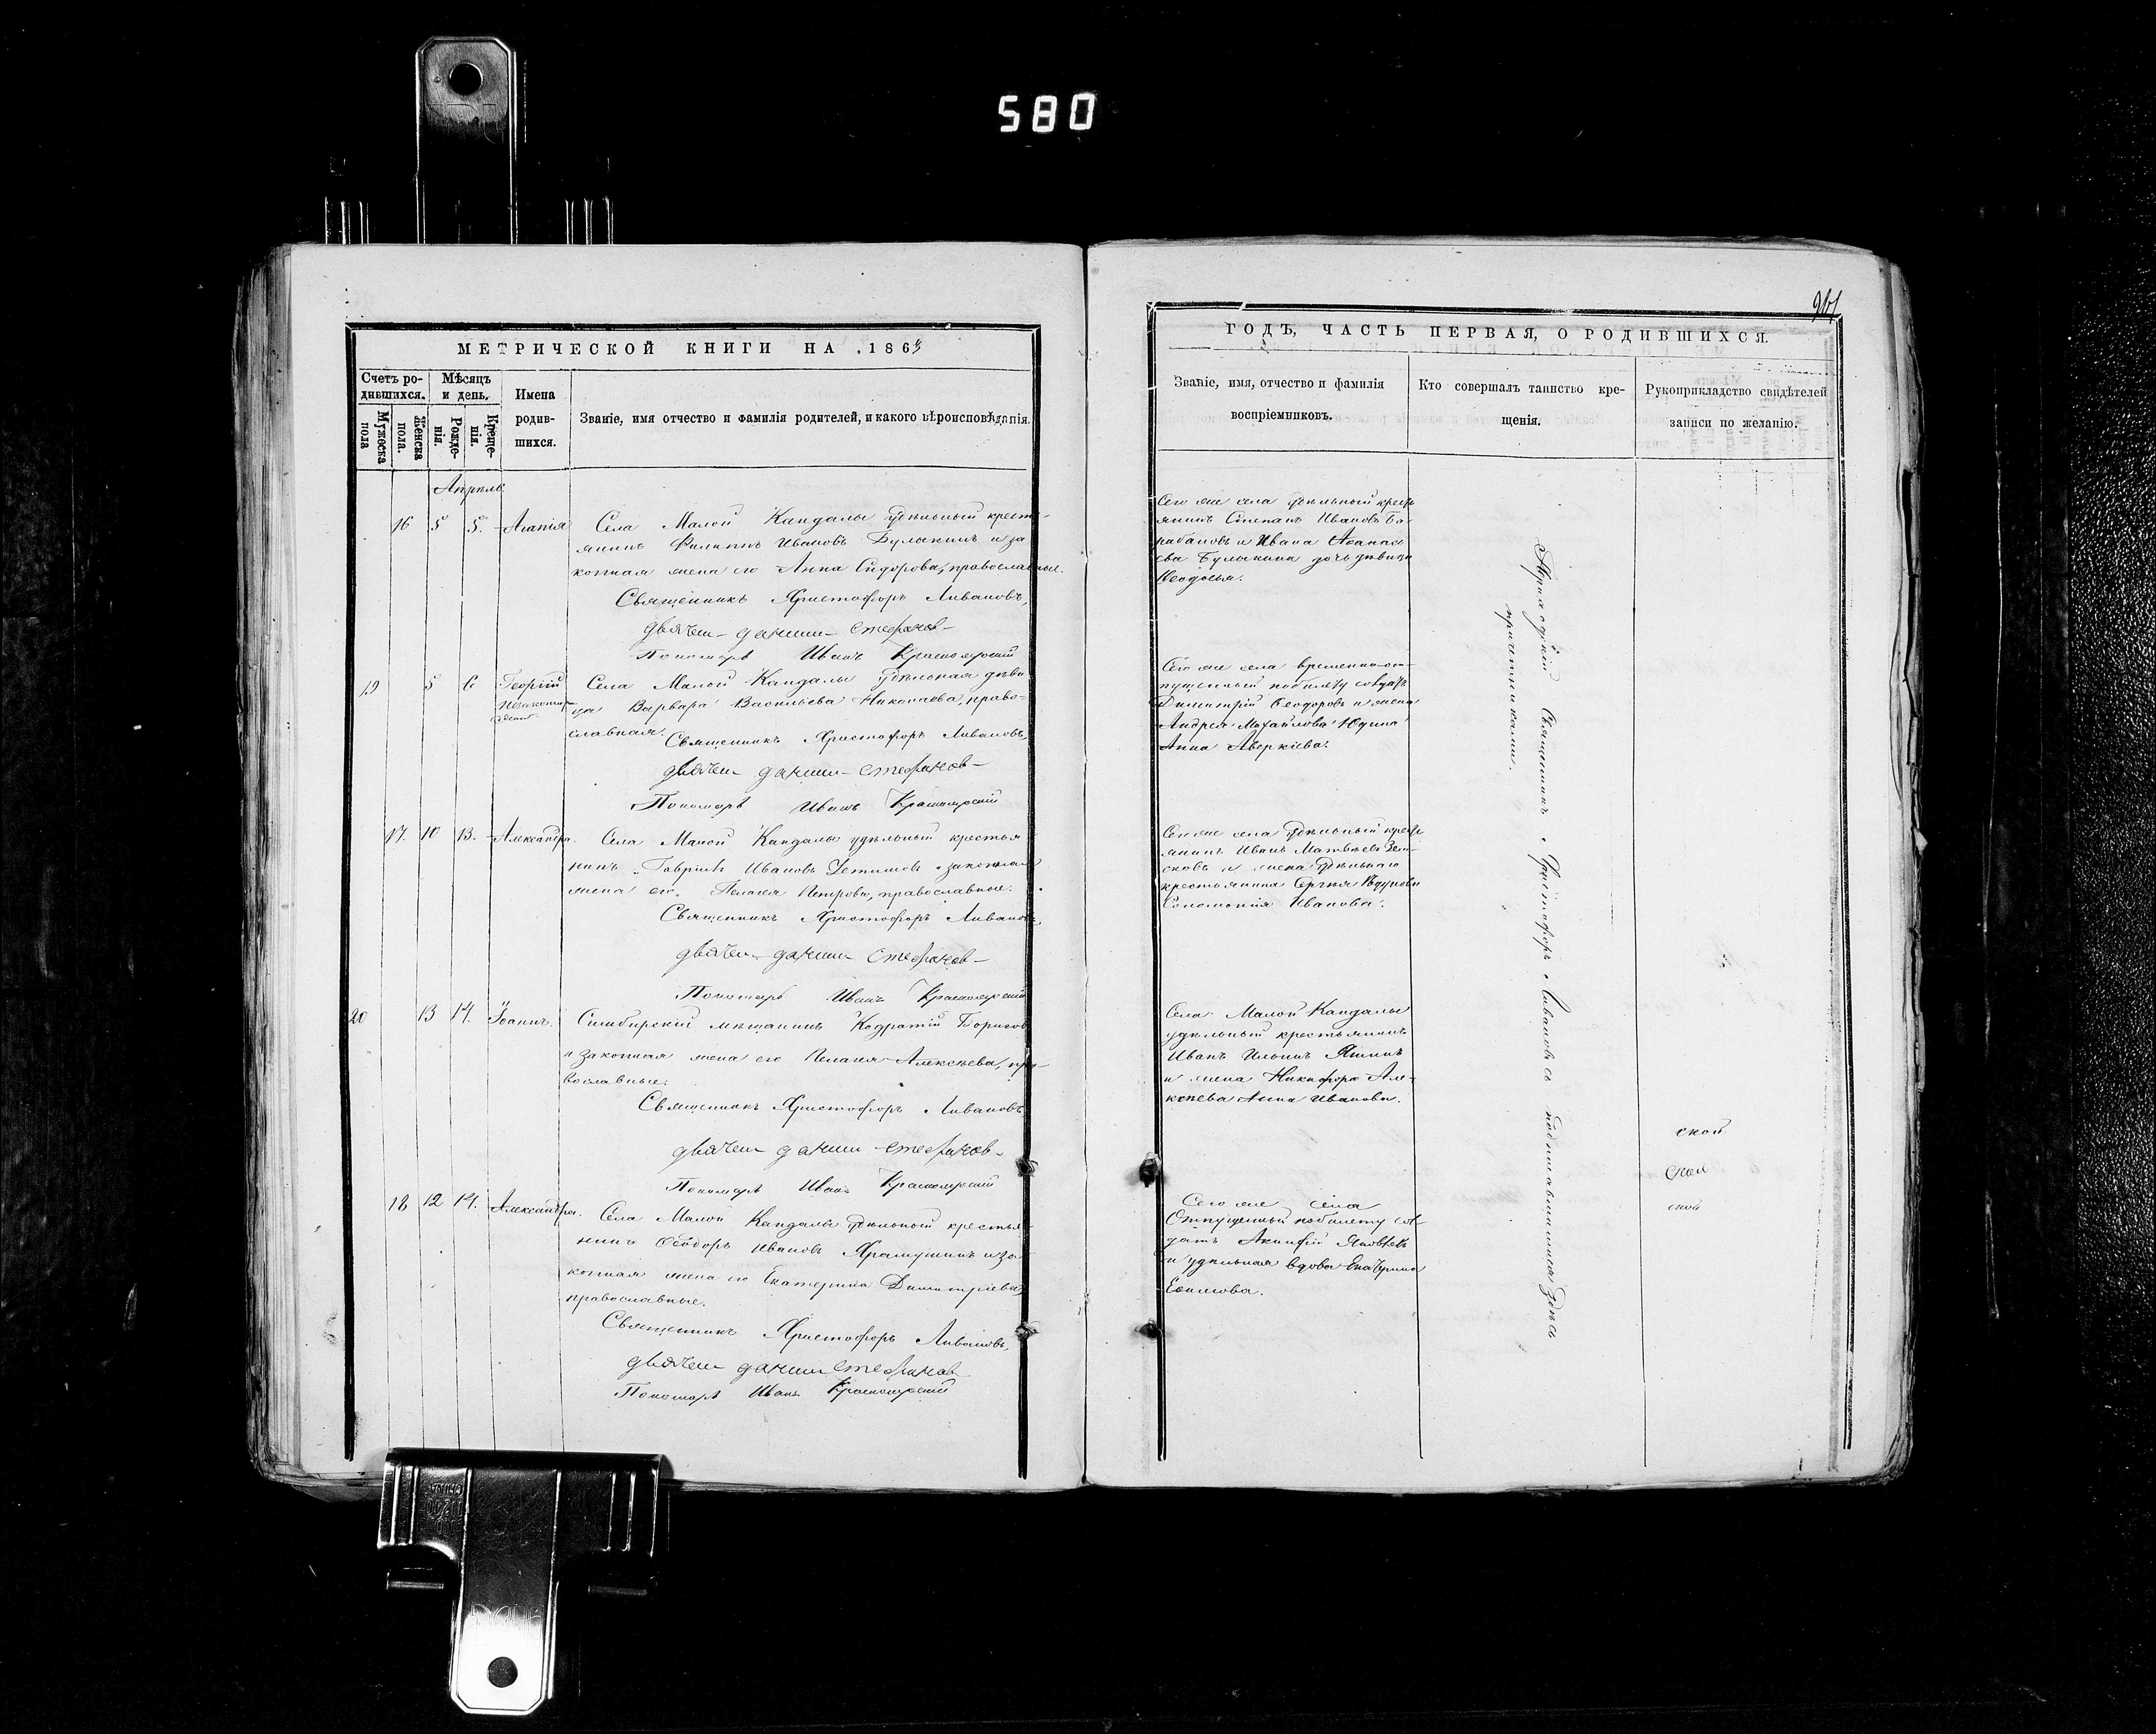 580
МЕТРИЧЕСКОЙ КНИГИ НА 1863
Счетъ ро-
дившихся.
Мужеска пола
Женска пола.
Мѣсяцъ
и день.
Рожде-
нія.
Креще-
нія.
Имена
родив-
шихся.
Званіе, имя отчество и фамилія родителей, и какого вѣроисповѣданія.
Апрель
16 5 5. Агапія
Села Малой Кандалы удѣльный кресть-
янинъ Филиппъ Ивановъ Булыкинъ и за
конная жена его Анна Сидорова, православные.
Священникъ Христофоръ Ливановъ,
Пономарь Иванъ Красноярскій
19 5 6 Георгій
незаконно
Села Малой Кандалы удѣльная дѣви
ца Варвара Васильева Николаева, право-
славная.
Священникъ Христофоръ Ливановъ,
Пономарь Иванъ Красноярскій
17. 10 13. Александра.
Села Малой Кандалы удѣльный крестья
нинъ Гавріилъ Ивановъ и законная
жена его Пелагея Петрова, православные.
Священникъ Христофоръ Ливановъ
Пономарь Иванъ Красноярскій
20 13 14. Іоаннъ.
Симбирскій мѣщанинъ Кодратій Борисовъ
и законная жена его Пелагея Алексѣева, пра-
вославные.
Священникъ Христофоръ Ливановъ
Пономарь Иванъ Красноярскій
18 12 14. Александра.
Села Малой Кандалы удѣльный крестья
нинъ Ѳеодоръ Ивановъ Храмушинъ и за
конная жена его Екатерина Димитріева,
православные.
Священникъ Христофоръ Ливановъ,
Пономарь Иванъ Красноярскій
ГОДЪ, ЧАСТЬ ПЕРВАЯ, О РОДИВШИХСЯ.
Званіе, имя, отчество и фамилія
воспріемниковъ.
Кто совершалъ таинство кре-
щенія.
Рукоприкладство свидѣтелей
записи по желанію.
Сего же села удѣльный кресть
янинъ Степанъ Ивановъ Ба-
рабановъ и Ивана Аѳанась
ева Булыкина дочь дѣвица
Ѳеодосья.
Сего же села временно-от-
пущенный по билету солдатъ
Димитрій Ѳеодоровъ и жена
Андрея Михайлова Юдина
Анна Аверкіева.
Сего же села удѣльный кресть
янинъ Иванъ Матвѣевъ Зем-
сковъ и жена удѣльнаго
крестьянина Сергія
Соломонія Иванова.
Села Малой Кандалы
удѣльный крестьянинъ
Иванъ Ильинъ Яшинъ
и жена Никифора Але-
ксѣева Анна Иванова.
Сего же села
Отпущенный по билету сол-
датъ Акинфій Яковлевъ
и удѣльная вдова Екатерина
Ефимова.
Приходскій Священникъ Христофоръ Ливановъ съ подписавшимися здѣсь
причетниками.